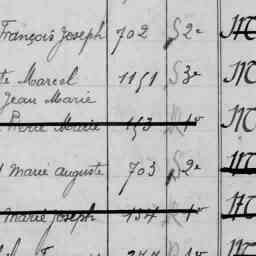 François Joseph 702 S 2e M
te Marcel 1151 S 3e M
Jean Marie
Pierre Marie 153 R 1er M
Marie Auguste 703 S 2e M
Marie Joseph 154 R 1er M